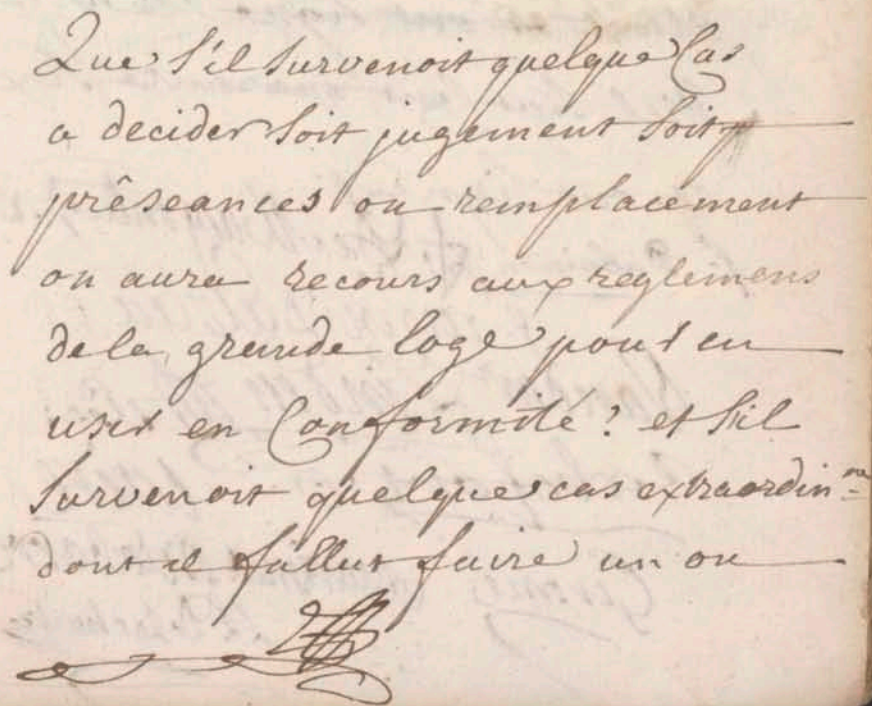 Que s'il survenoit quelque Cas
a decider soit jugement soit
prêseances ou remplacement
on aura recours aux reglemens
de la grande loge pour en
user en Conformité? et s'il
survenoit quelque cas extraordin.re
dont il fallut faire un ou